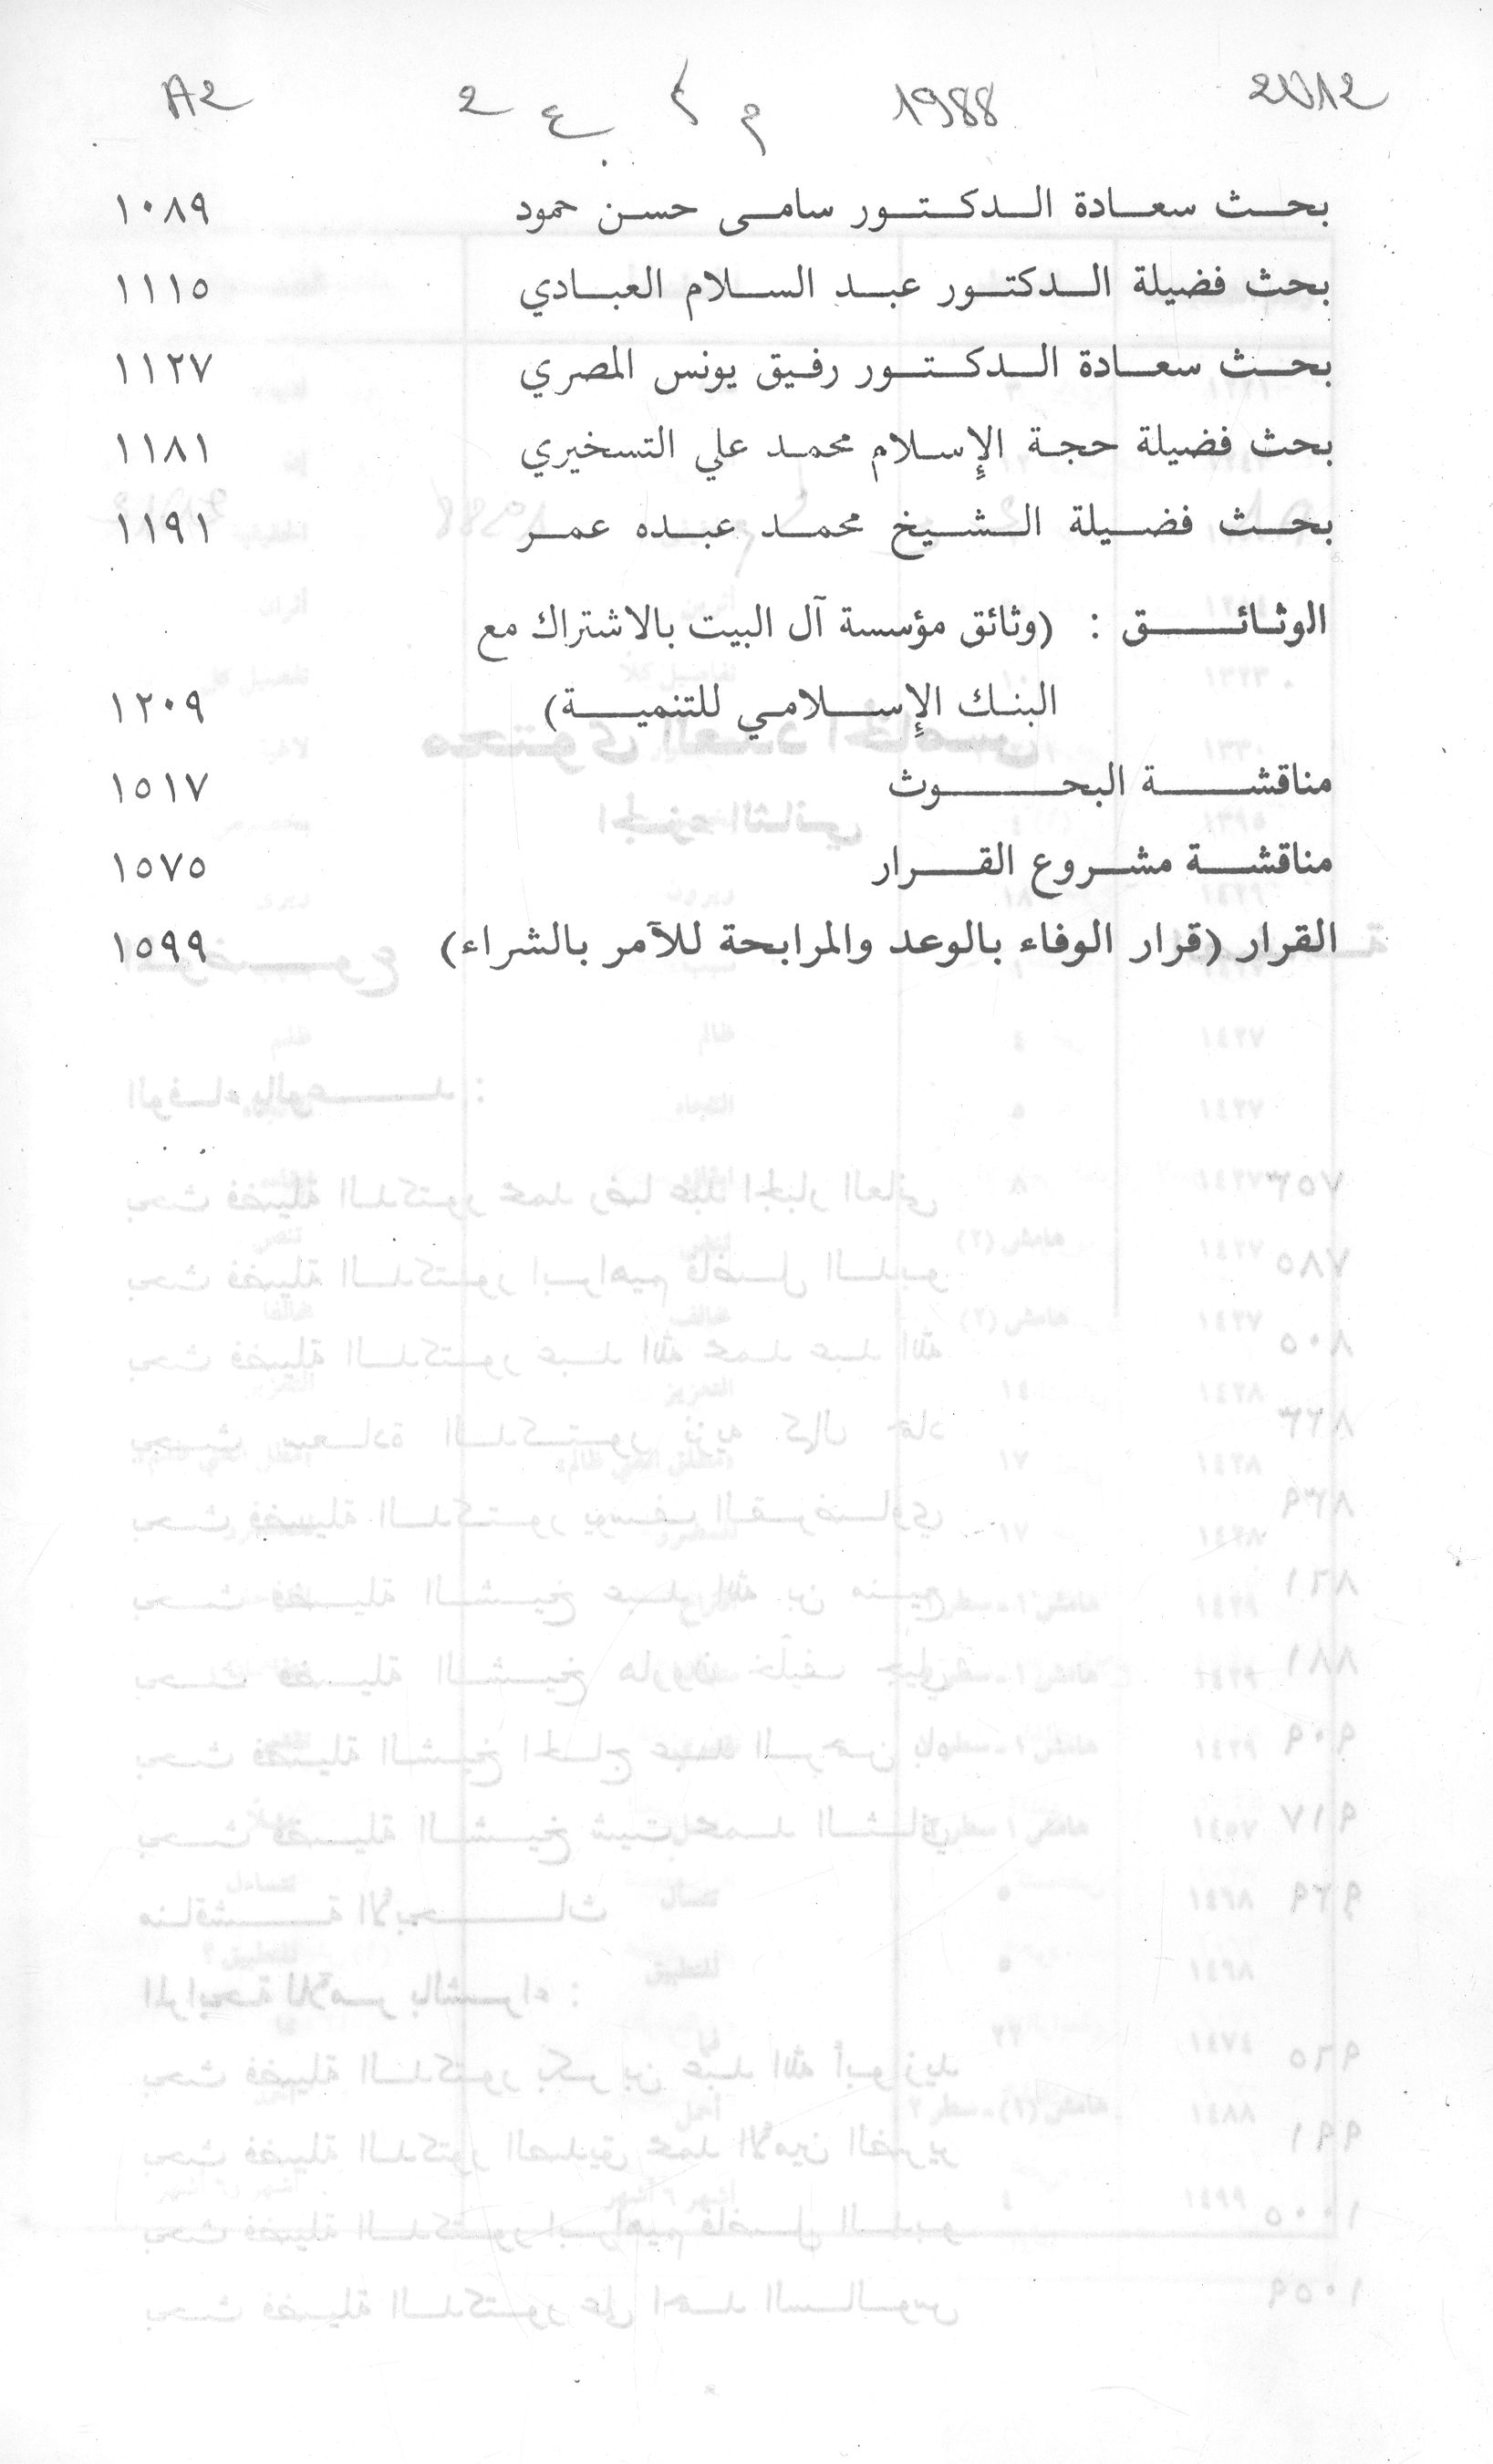 2012 1988 م ع 2 A2
بحث سعادة الدكتور سامى حسن حمود ١٠٨٩
بحث فضيلة الدكتور عبد السلام العبادي ١١١٥
بحث سعادة الدكتور رفيق يونس المصري ١١٢٧
بحث فضيلة حجة الإسلام محمد علي التسخيري ١١٨١
بحث فضيلة الشيخ محمد عبده عمر ١١٩١
الوثائق : (وثائق مؤسسة آل البيت بالاشتراك مع
البنك الإسلامي للتنمية) ١٢٠٩
مناقشة البحوث ١٥١٧
مناقشة مشروع القرار ١٥٧٥
القرار (قرار الوفاء بالوعد والمرابحة للآمر بالشراء) ١٥٩٩